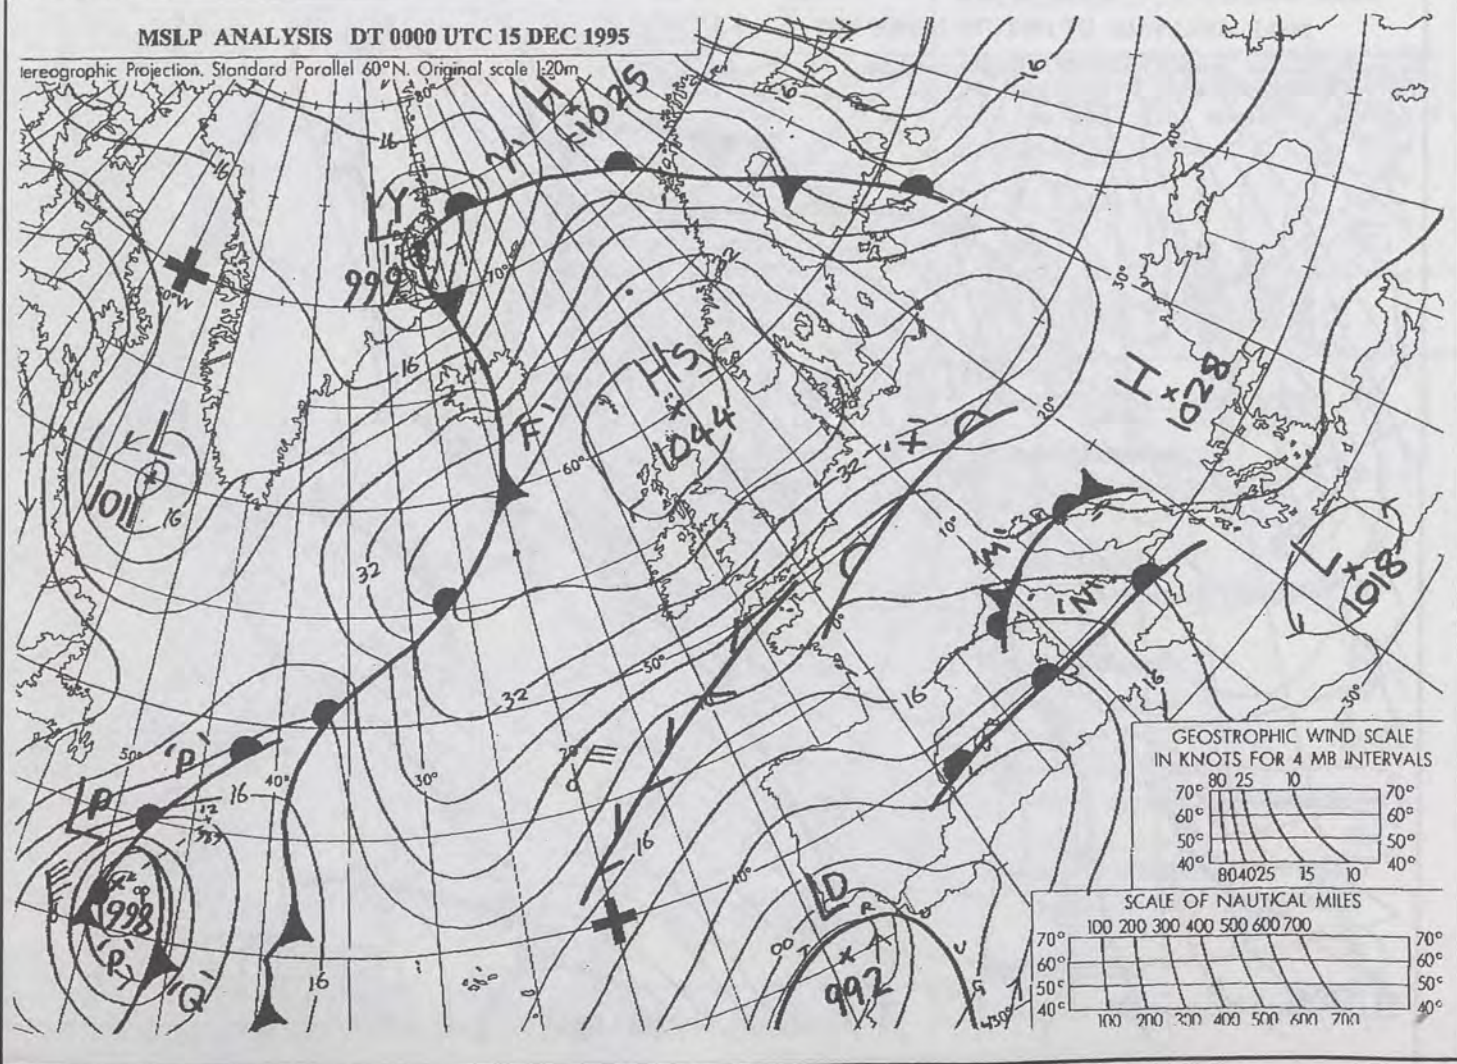 MSLP ANALYSIS DT 0000 UTC 15 DEC 1995
tereographic Projection. Standard Parallel 60°N. Original scale 1:20m
80°
H
1025
16
16
16
40°
16
'Y'
LY
999
70°
30°
50°W
16
H 'S'
1044
H
1028
'F'
20°
'X'
60°
32
L
1011
16
10°
'M'
32
'N'
L
1018
50°
32
16
16
30°
50°
'P'
40°
30°
16
LP
16
40°
LD
998
'P'
'Q'
16
992
30°
GEOSTROPHIC WIND SCALE
IN KNOTS FOR 4 MB INTERVALS
80 25 10
70° 70°
60° 60°
50° 50°
40° 40°
80 40 25 15 10
SCALE OF NAUTICAL MILES
100 200 300 400 500 600 700
70° 70°
60° 60°
50° 50°
40° 40°
100 200 300 400 500 600 700